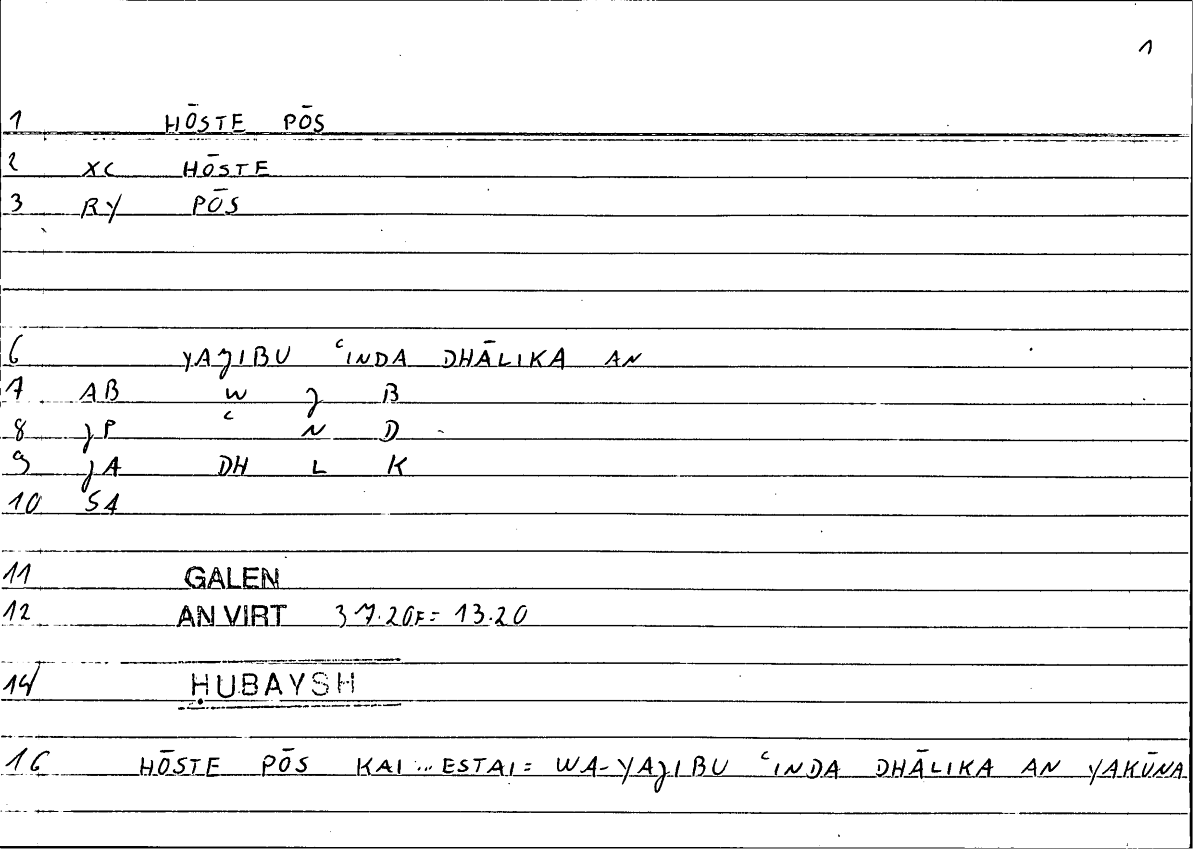 1
1 HŌSTE PŌS
2 XC HŌSTE
3 RY PŌS
6 YAJIBU ʿINDA DHĀLIKA AN
7 AB W J B
8 JP ʿ N D
9 JA DH L K
10 SA
11 GALEN
12 AN VIRT 37.20F= 13.20
14 ḤUBAYSH
16 HŌSTE PŌS KAI...ESTAI= WA-YAJIBU ʿINDA DHĀLIKA AN YAKŪNA